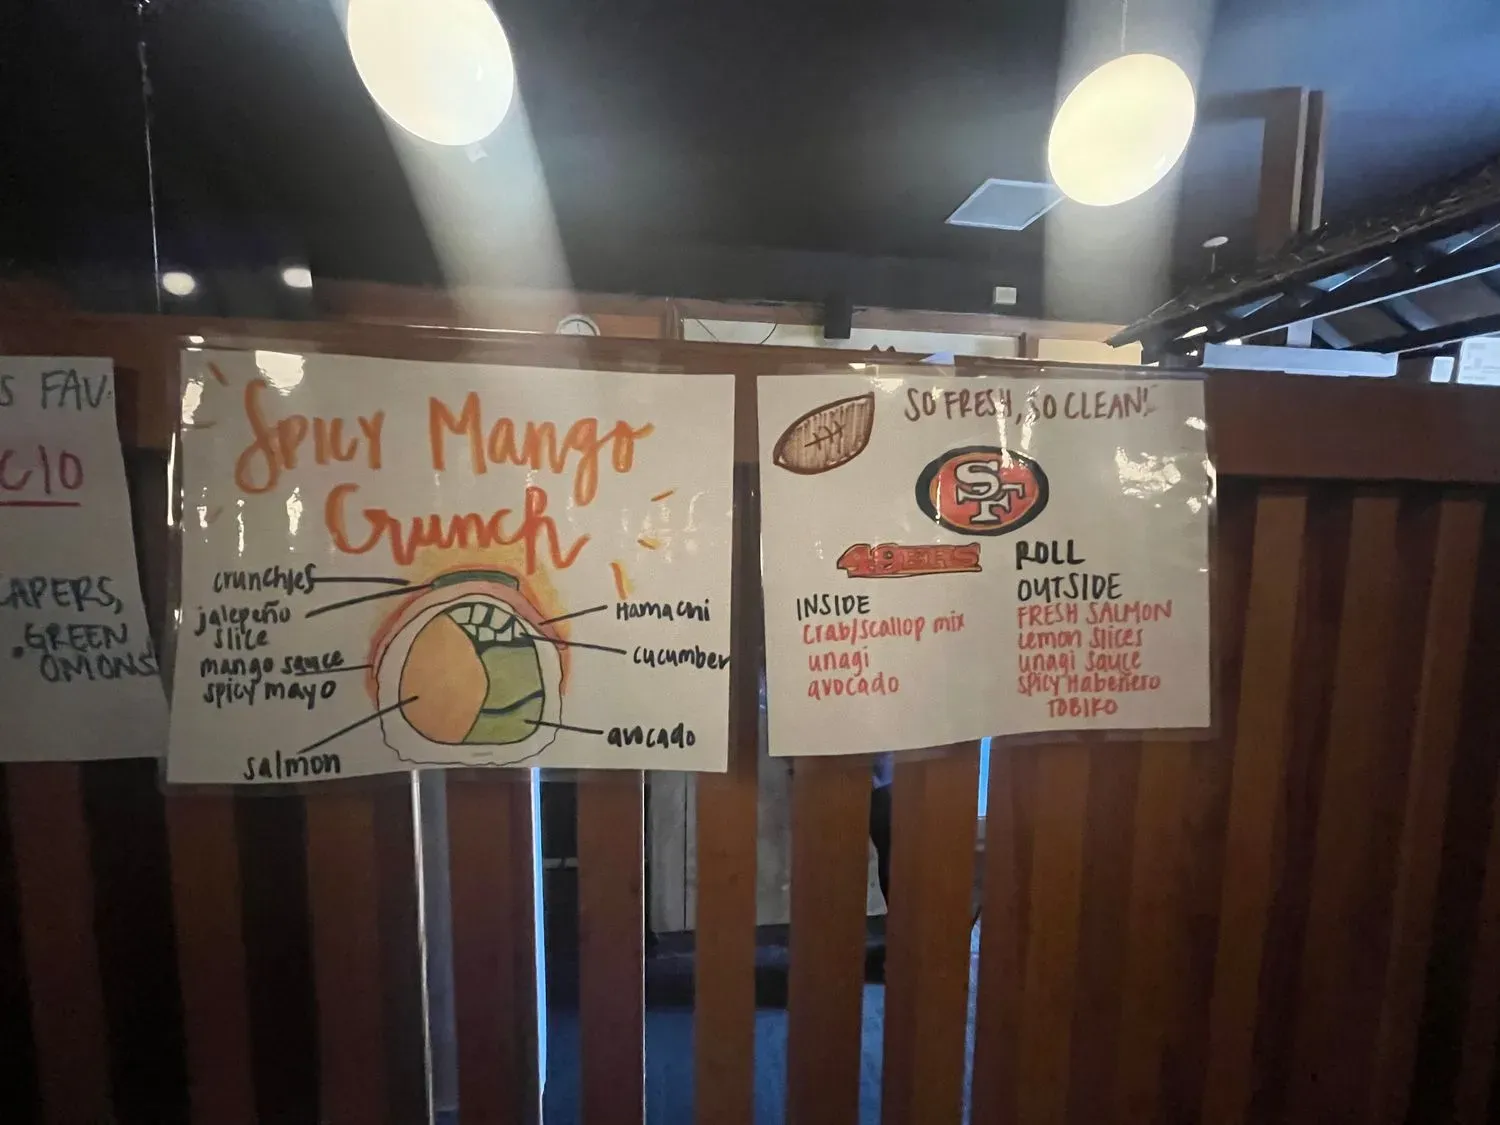 S FAV:
CIO
CAPERS,
•GREEN
ONIONS
SPICY Mango
Crunch
crunchies
jalepeño
slice
mango sauce
spicy mayo
salmon
Hamachi
cucumber
avocado
SO FRESH, SO CLEAN!
SF
49ERS
ROLL
INSIDE
crab/scallop mix
unagi
avocado
OUTSIDE
FRESH SALMON
lemon slices
unagi sauce
spicy Habeñero
TOBIKO